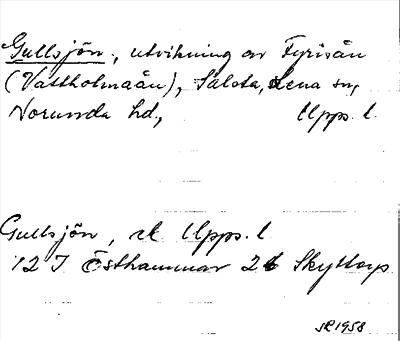 Gullsjön, utvikning av Fyrisån
(Vattholmaån), Salsta, Lena sn,
Norunda hd, Upps. l.
Gullsjön, Upps. l
12 I Östhammar 2 Skyttorp
1958